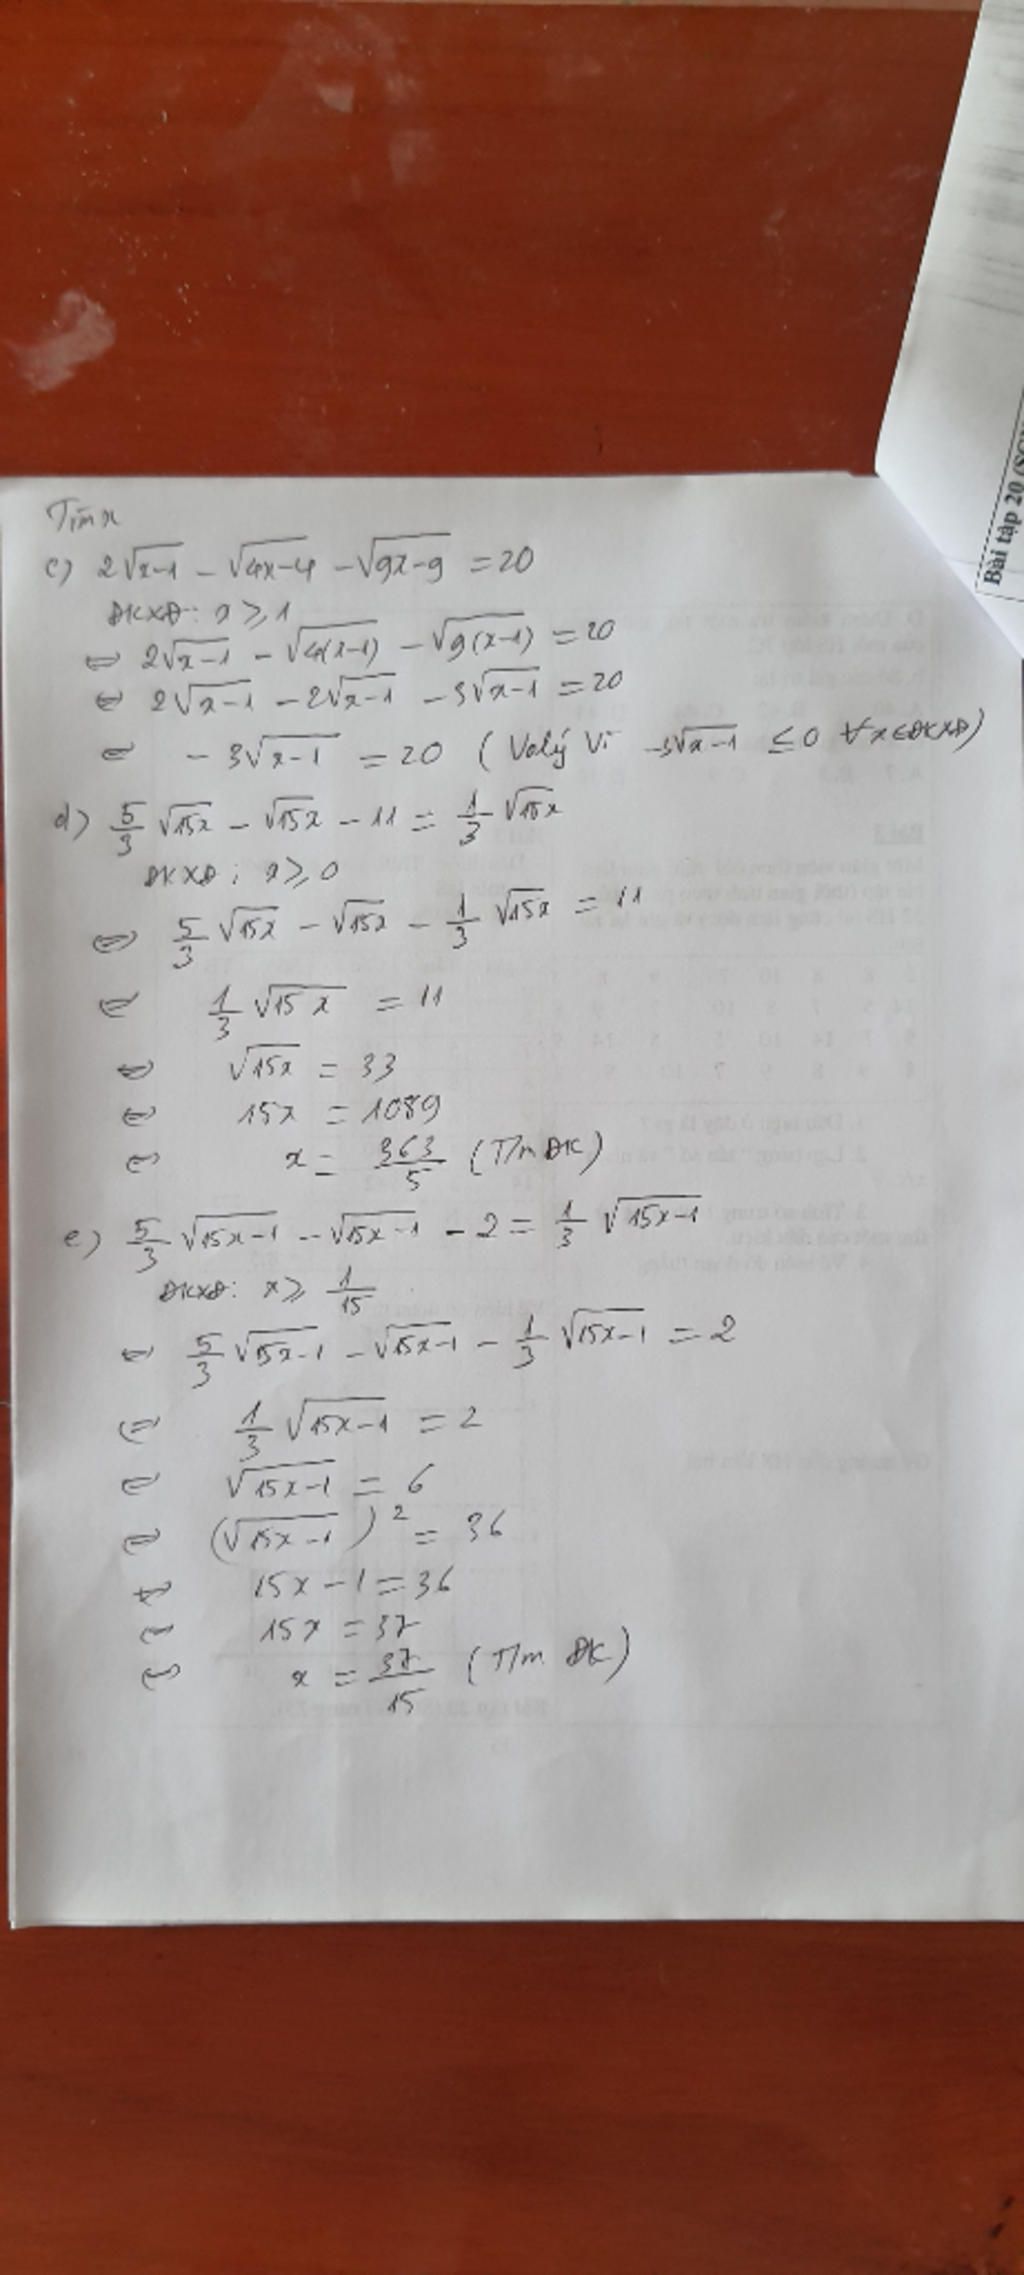 Tìm x
c) 2√(x-1) - √(4x-4) - √(9x-9) = 20
ĐKXĐ: x ≥ 1
⇔ 2√(x-1) - √(4(x-1)) - √(9(x-1)) = 20
⇔ 2√(x-1) - 2√(x-1) - 3√(x-1) = 20
⇔ -3√(x-1) = 20 (Vô lý Vì -3√(x-1) ≤ 0 ∀x∈ĐKXĐ)
d) 5/3 √15x - √15x - 11 = 1/3 √15x
ĐKXĐ: x ≥ 0
⇔ 5/3 √15x - √15x - 1/3 √15x = 11
⇔ 1/3 √15x = 11
⇔ √15x = 33
⇔ 15x = 1089
⇔ x = 363/5 (T/m ĐK)
e) 5/3 √(15x-1) - √(15x-1) - 2 = 1/3 √(15x-1)
ĐKXĐ: x ≥ 1/15
⇔ 5/3 √(15x-1) - √(15x-1) - 1/3 √(15x-1) = 2
⇔ 1/3 √(15x-1) = 2
⇔ √(15x-1) = 6
⇔ (√(15x-1))² = 36
⇔ 15x - 1 = 36
⇔ 15x = 37
⇔ x = 37/15 (T/m ĐK)
Bài tập 20